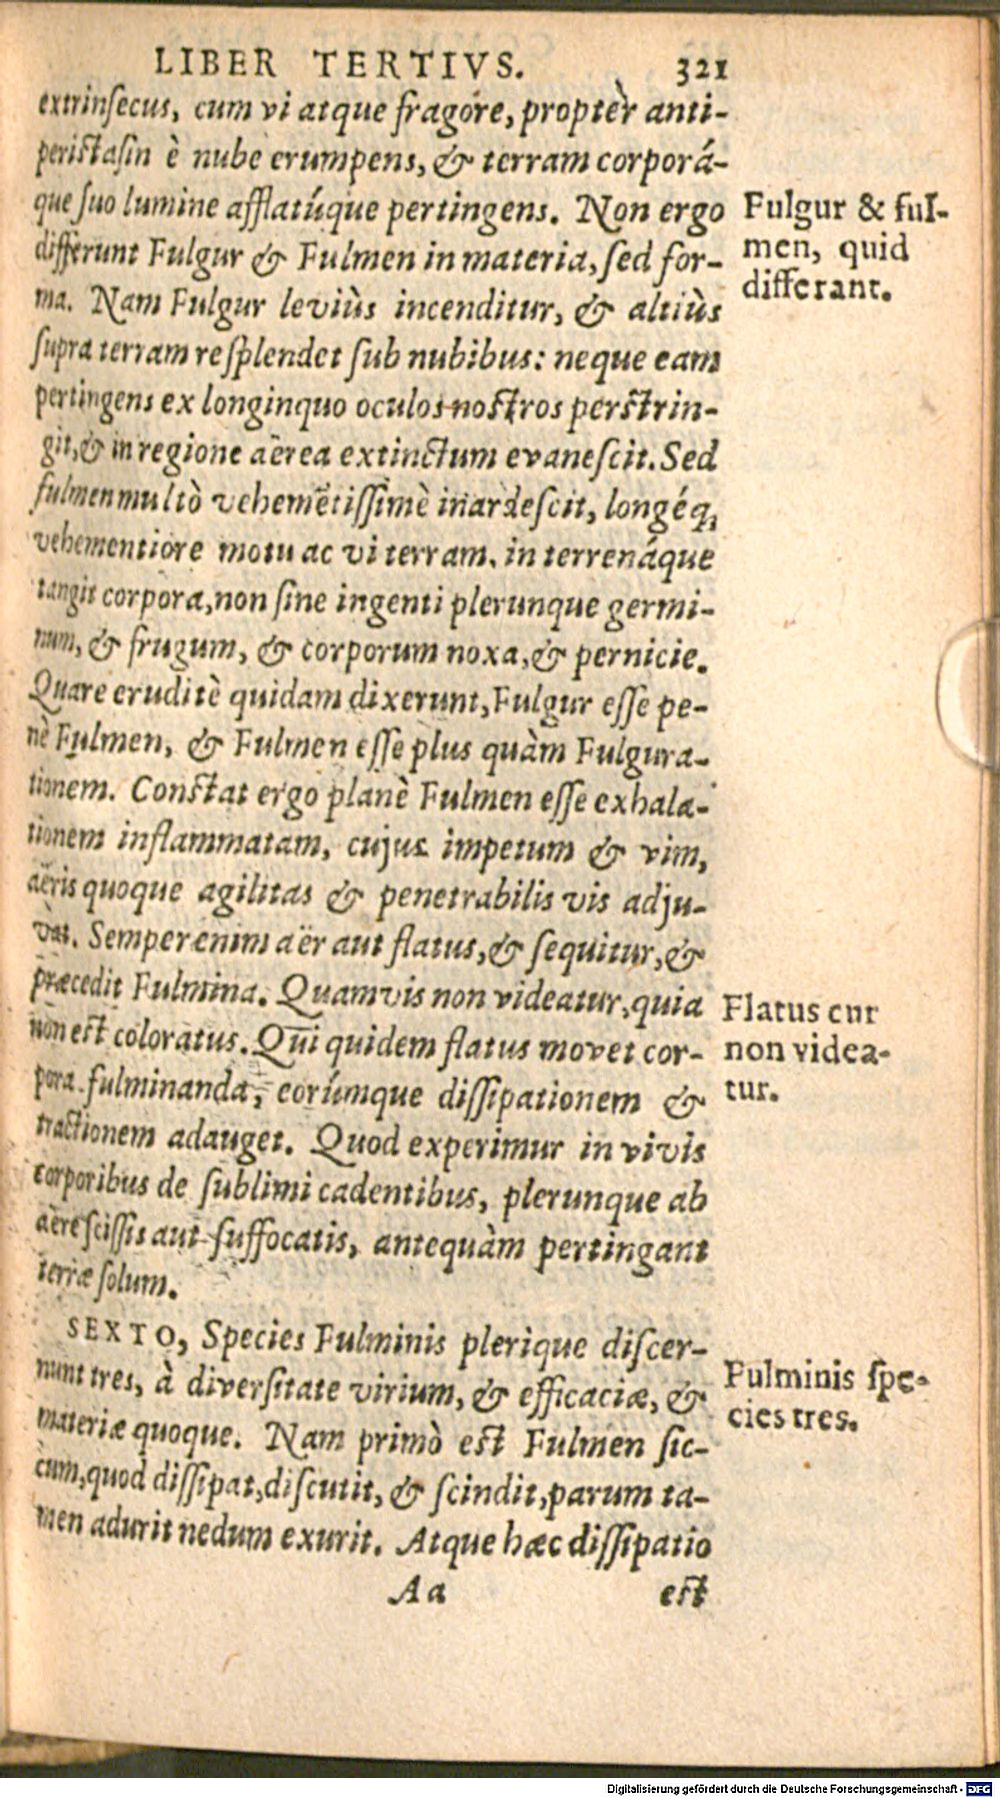 LIBER TERTIVS. 321
extrinſecus, cum vi atque fragóre, proptèr anti-
periſtaſin è nube erumpens, & terram corporá-
que ſuo lumine afflatúque pertingens. Non ergo
differunt Fulgur & Fulmen in materia, ſed for-
ma. Nam Fulgur leviùs incenditur, & altiùs
ſupra terram reſplendet ſub nubibus: neque eam
pertingens ex longinquo oculos noſtros perſtrin-
git, & in regione aërea extinctum evaneſcit. Sed
fulmen multò vehemẽtiſſimè inardeſcit, longéq;
vehementiore motu ac vi terram, in terrenáque
tangit corpora, non ſine ingenti plerunque germi-
num, & frugum, & corporum noxa, & pernicie.
Quare eruditè quidam dixerunt, Fulgur eſſe pe-
nè Fulmen, & Fulmen eſſe plus quàm Fulgura-
tionem. Conſtat ergo planè Fulmen eſſe exhala-
tionem inflammatam, cujus impetum & vim,
aëris quoque agilitas & penetrabilis vis adju-
vat. Semper enim aër aut flatus, & ſequitur, &
præcedit Fulmina. Quamvis non videatur, quia
non eſt coloratus. Qui quidem flatus movet cor-
pora fulminanda, eorúmque diſſipationem &
tractionem adauget. Quod experimur in vivis
corporibus de ſublimi cadentibus, plerunque ab
aëre ſciſſis aut ſuffocatis, antequàm pertingant
terræ ſolum.
SEXTO, Species Fulminis plerique diſcer-
nunt tres, à diverſitate virium, & efficaciæ, &
materiæ quoque. Nam primò eſt Fulmen ſic-
cum, quod diſſipat, diſcutit, & ſcindit, parum ta-
men adurit nedum exurit. Atque hæc diſſipatio
Aa eſt
Fulgur & ful-
men, quid
differant.
Flatus cur
non videa-
tur.
Fulminis ſpe-
cies tres.
Digitalisierung gefördert durch die Deutsche Forschungsgemeinschaft - DFG